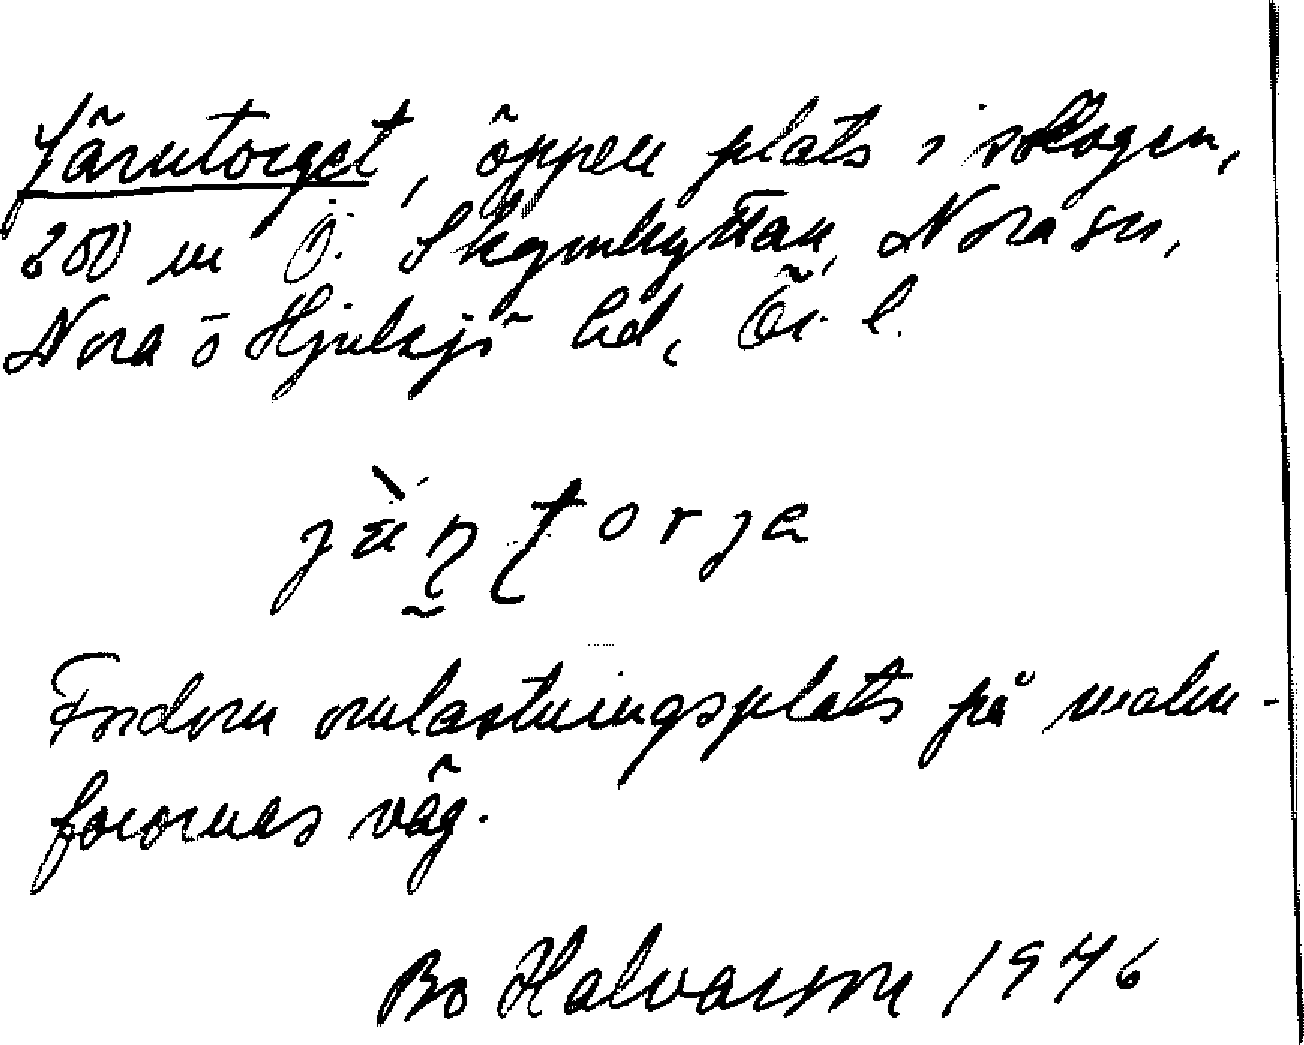 Järntorget, öppen plats i skogen,
200 m Ö. Skymhyttan, Nora sn,
Nora o Hjulsjö bd, Ör. l.
jæ̀ṇṭorja
Fordom omlastningsplats på malm-
forornas väg.
Bo Halvarsson 1946